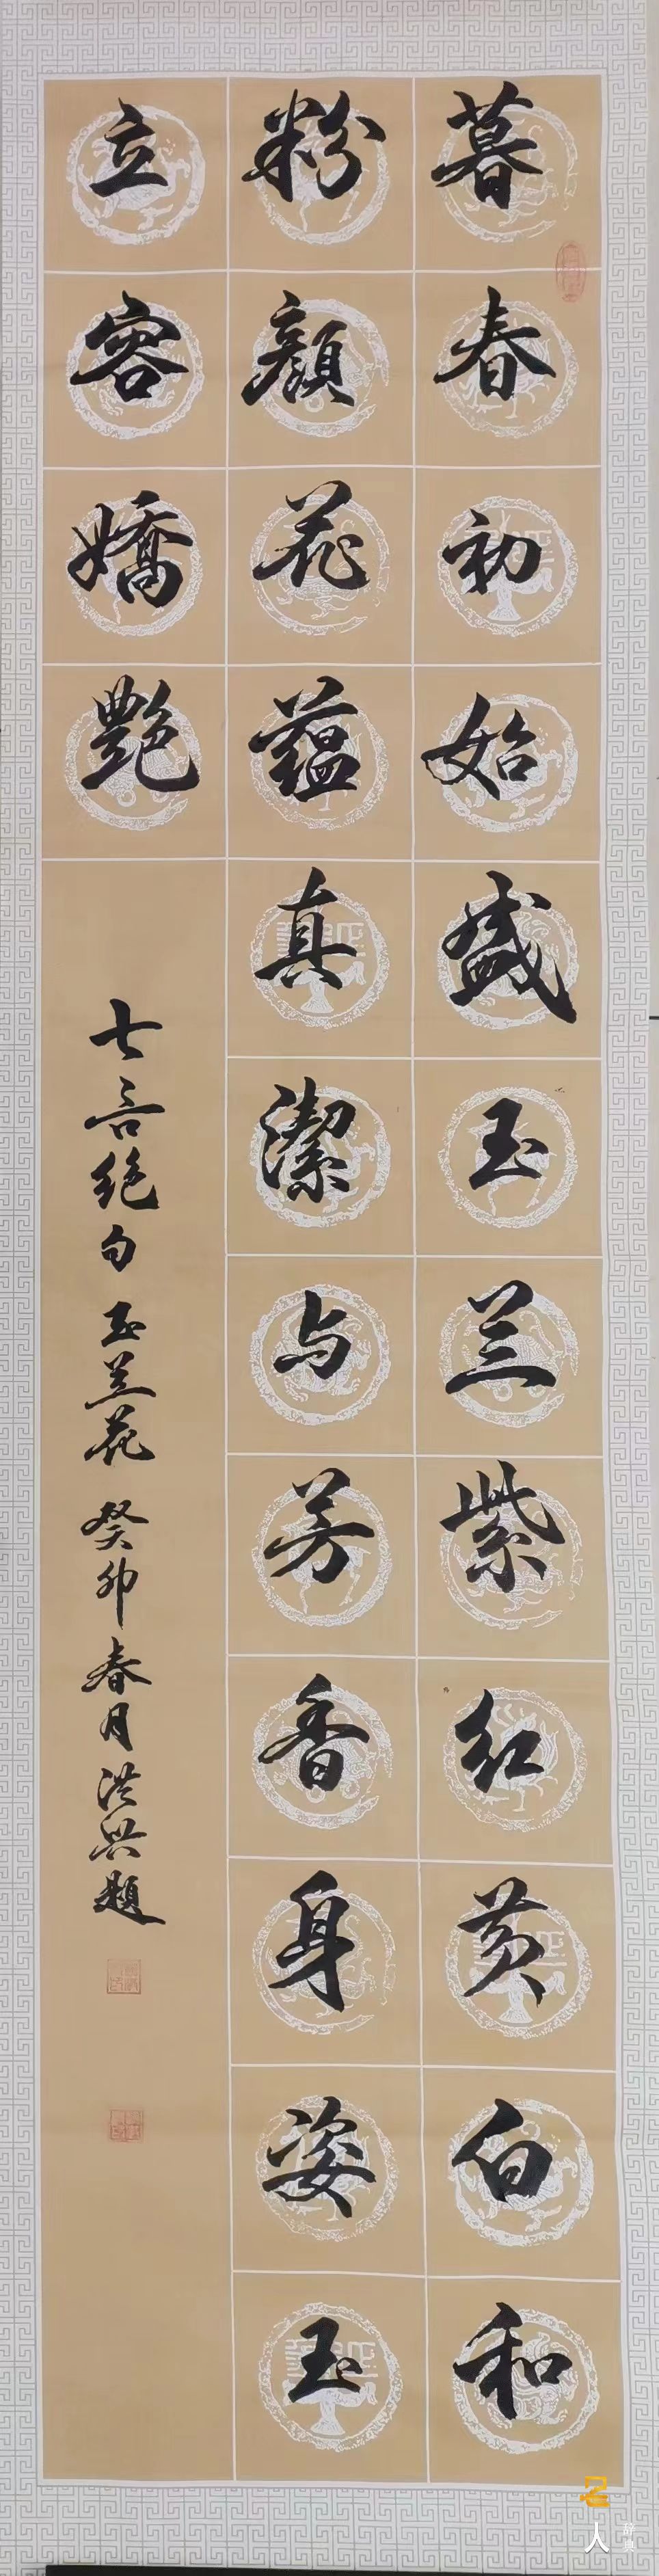 暮春初始盛玉兰紫红黄白和
粉颜花蕴真潔与芳香身姿玉
立容嬌艷
七言绝句 玉兰花 癸卯春月洪兴題
名人
辞典